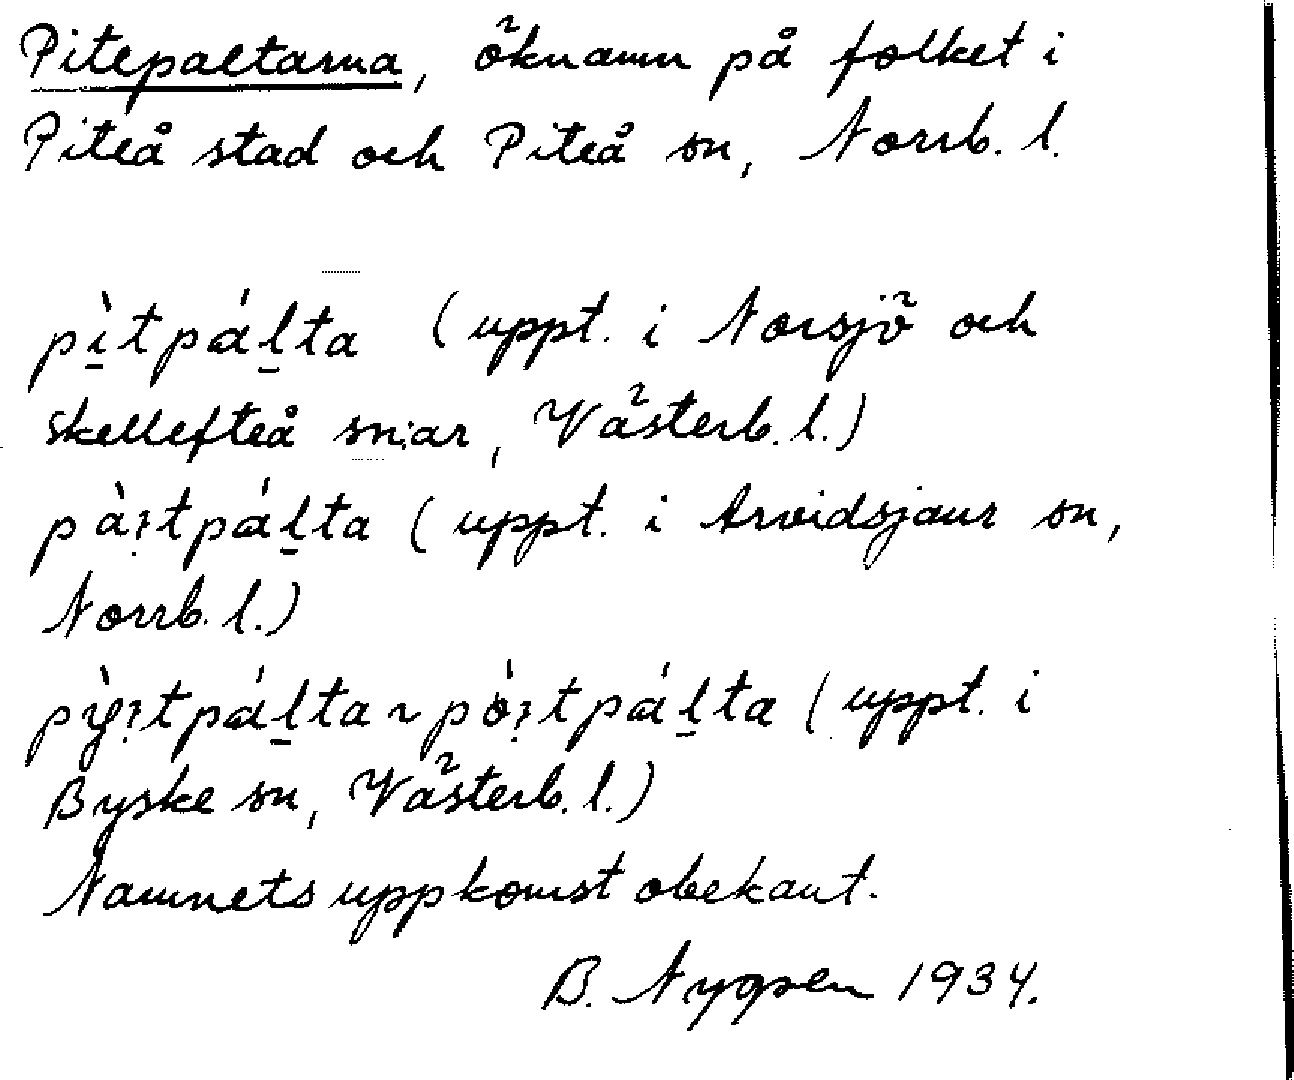 Pitepaltarna, öknamn på folket i
Piteå stad och Piteå sn, Norrb. l.
pìtpálta (uppt. i Norsjö och
Skellefteå sn:ar, Västerb. l.)
pàɿtpálta (uppt. i Arvidsjaur sn,
Norrb. l.)
pỳɿtpálta ~ pòɿtpálta (uppt. i
Byske sn, Västerb. l.)
Namnets uppkomst obekant.
B. Nygren 1934.